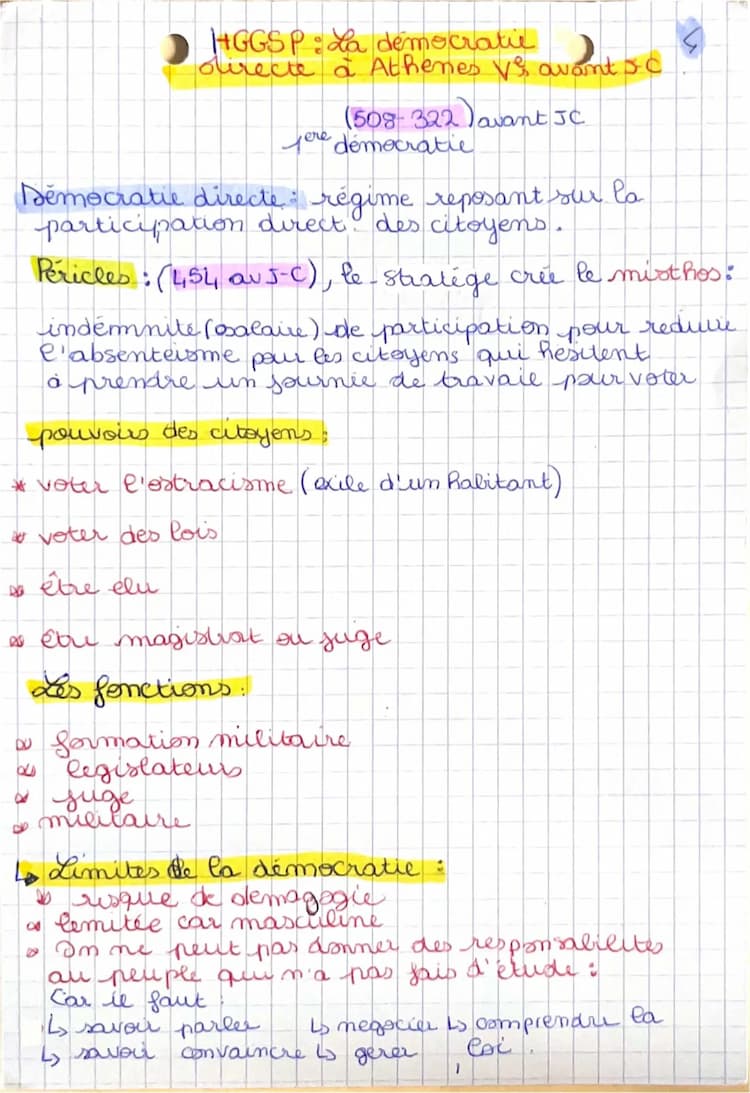 HGGSP : La démocratie
directe à Athènes Vs avant J-C
(508-322) avant JC
1ere démocratie
Démocratie directe : régime reposant sur la
participation direct des citoyens.
Péricles : (454 av J-C), le stratége crée le misthos :
indémnité (salaire) de participation pour reduire
l'absenteisme pour les citoyens qui hesitent
à prendre un journie de travaie pour voter
pouvoirs des citoyens :
* voter l'ostracisme (exile d'un habitant)
* voter des lois
* être elu
* être magistrat ou juge
Les fonctions :
* formation militaire
* legislateurs
* juge
* militaire
↳ Limites de la démocratie :
* risque de demagogie
* limitée car masculine
* On ne peut pas donner des responsabilites
au peuple qui n'a pas fais d'étude :
Car il faut :
↳ savoir parler ↳ negocier ↳ comprendre la
↳ savoir convaincre ↳ gerer loi.